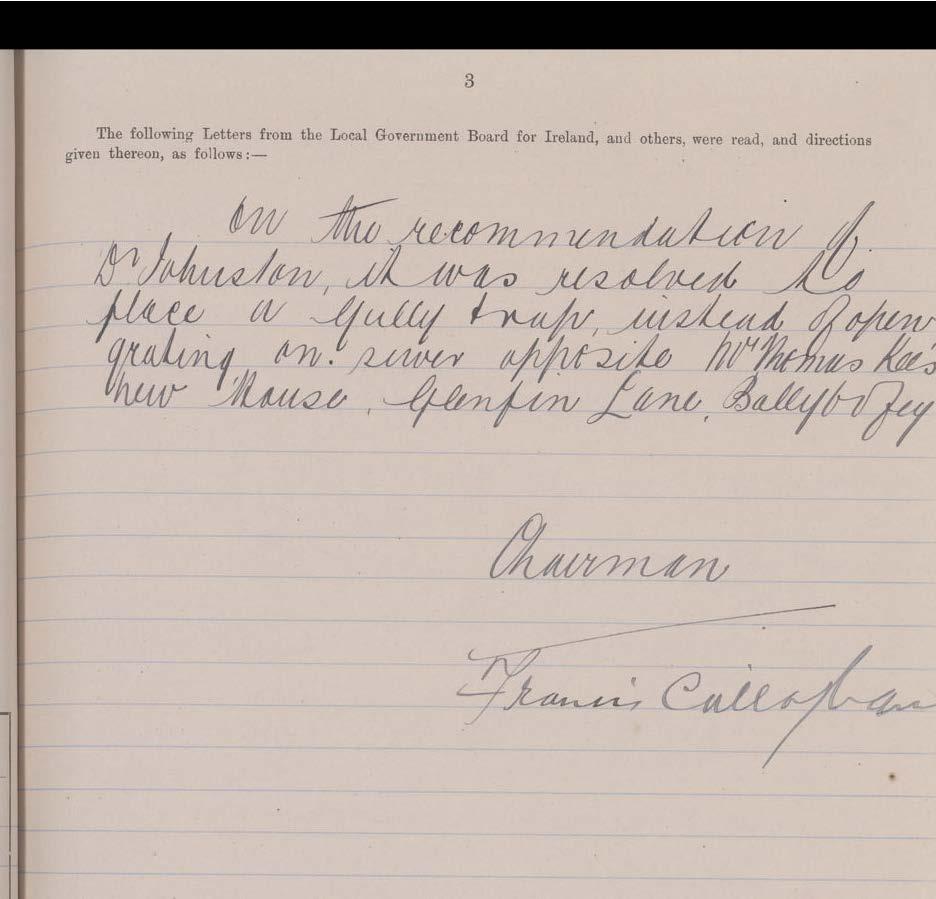 3
The following Letters from the Local Government Board for Ireland, and others, were read, and directions
given thereon, as follows:—
On the recommendation of
Dr Johnston, it was resolved to
place a Gully trap, instead of open
grating on sewer opposite Mr Thomas Kee's
new House, Glenfin Lane, Ballybofey
Chairman
Francis Callaghan